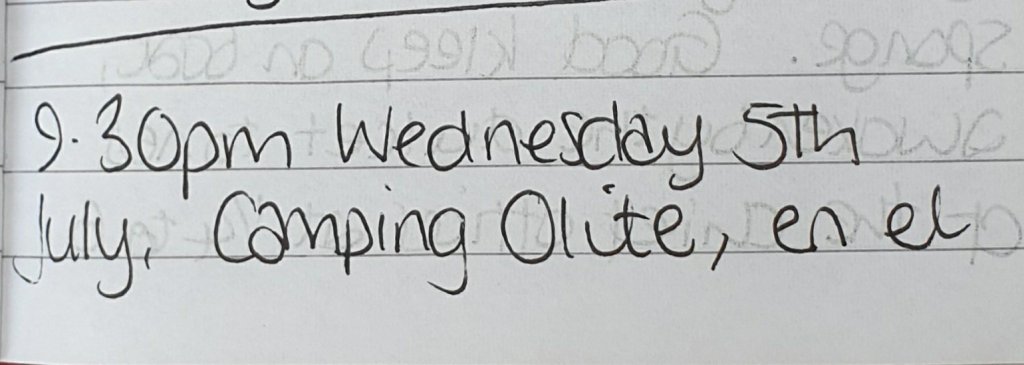 9.30pm Wednesday 5th
July, Camping Olite, en el